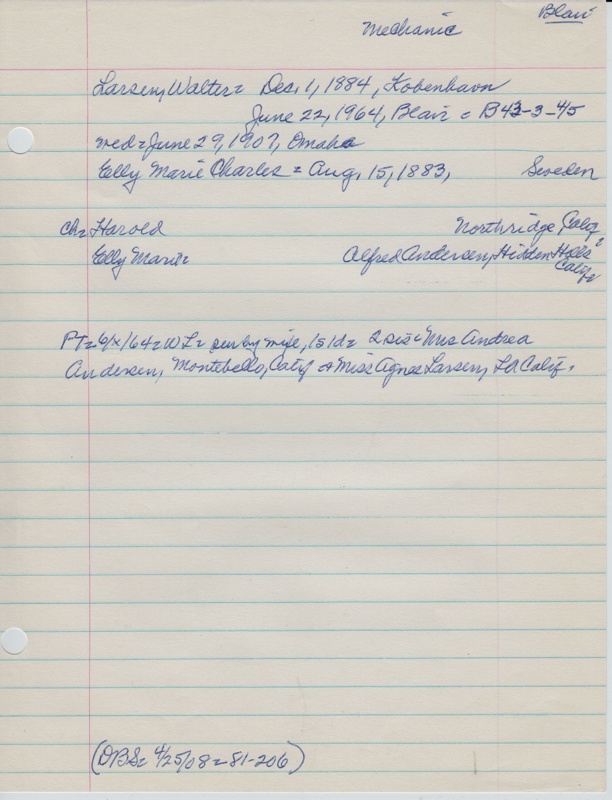 Blair
Mechanic
Larsen, Walter = Dec. 1, 1884, Kobenhavn
June 22, 1964, Blair = B43-3-4/5
wed = June 29, 1907, Omaha
Elly Marie Charles = Aug. 15, 1883, Sweden
ch = Harold Northridge, Calif
Elly Marie = Alfred Andersen, Hidden Hills
Calif
PT = 6/ /64 = W L = sur by wife, 1s 1d = 2 sis = Mrs Andrea
Andersen, Montebello, Calif + Miss Agnes Larsen, LA Calif.
(DBS = 4/25/08 = 81-206)